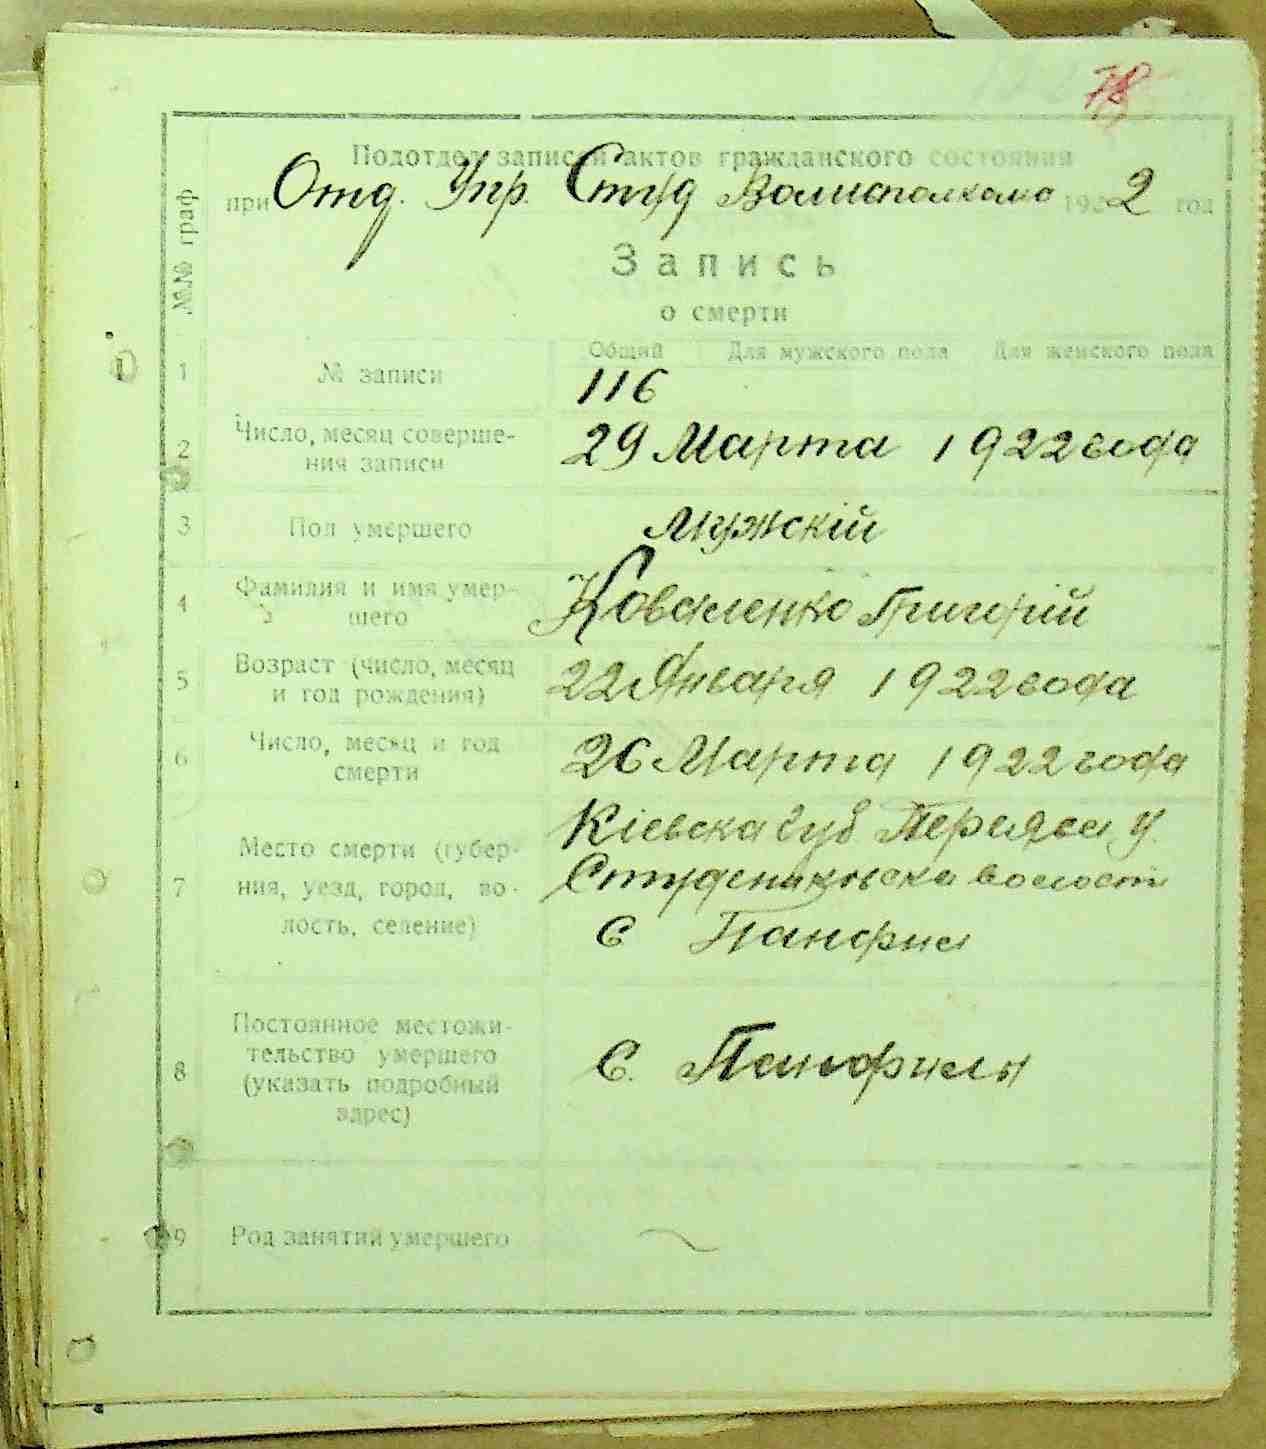 78
Подотдел записей актов гражданского состояния
при Отд. Упр. Студ Волисполкома 1922 год
№№ граф
Запись
о смерти
Общий Для мужского пола Для женского пола
1 № записи 116
2 Число, месяц соверше-
ния записи 29 Марта 1922 года
3 Пол умершего Мужскій
4 Фамилия и имя умер-
шего Коваленко Григорій
5 Возраст (число, месяц
и год рождения) 22 Января 1922 года
6 Число, месяц и год
смерти 26 Марта 1922 года
7 Место смерти (губер-
ния, уезд, город, во-
лость, селение) Кіевска губ. Переясл у.
Студениковска волость
с Панфил
8 Постоянное местожи-
тельство умершего
(указать подробный
адрес) с. Панфилы
9 Род занятий умершего